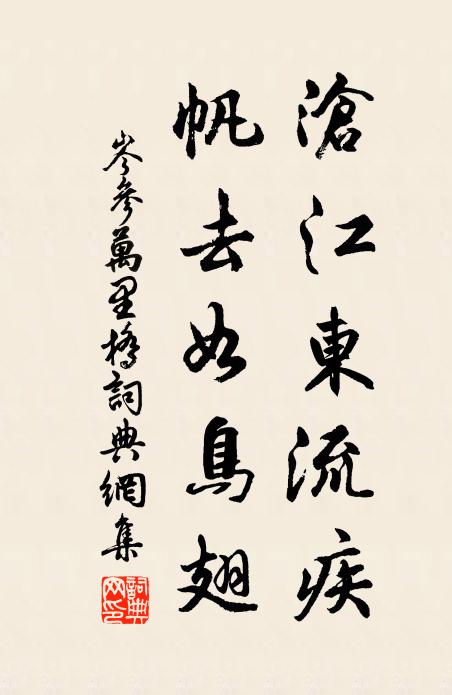 滄江東流疾
帆去如鳥翅
岑參萬里橋詞典網集
詞典
网印